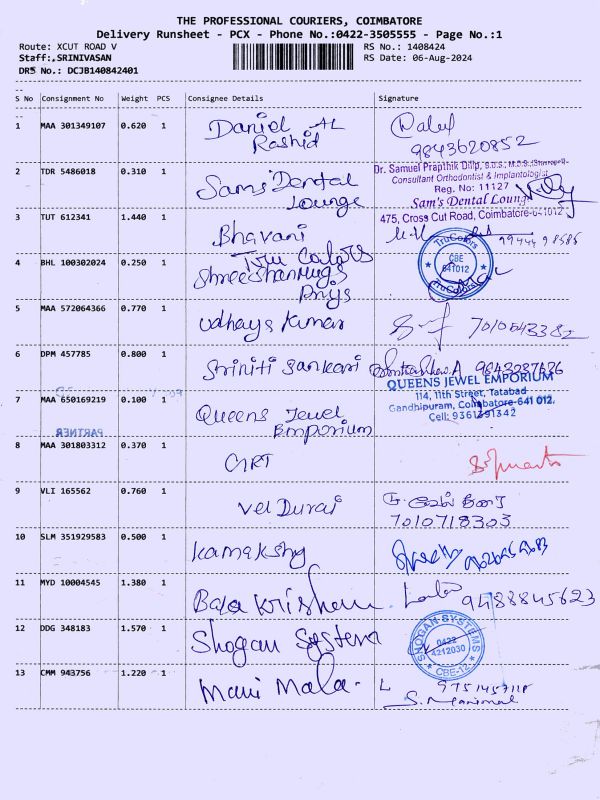 THE PROFESSIONAL COURIERS, COIMBATORE
Delivery Runsheet - PCX - Phone No.:0422-3505555 - Page No.:1
Route: XCUT ROAD V RS No.: 1408424
Staff:,SRINIVASAN RS Date: 06-Aug-2024
DRS No.: DCJB140842401
S No Consignment No Weight PCS Consignee Details Signature
1 MAA 301349107 0.620 1 Daniel AL
Rashid
9843620852
2 TDR 5486018 0.310 1 Sams Dental
Lounge
Dr. Samuel Prapthik Dilip,
Consultant Orthodontist & Implantologist
Reg. No: 11127
Sam's Dental Lounge
475, Cross Cut Road, Coimbatore-641012
3 TUT 612341 1.440 1 Bhavani
4 BHL 100302024 0.250 1 Tru Colors
TruColors
CBE
641012
TruColors
5 MAA 572064366 0.770 1 Udhaya Kumar 7010543382
6 DPM 457785 0.800 1 Sriniti Sankari
7 MAA 650169219 0.100 1 Queens Jewel
Emporium
QUEENS JEWEL EMPORIUM
114, 11th Street, Tatabad
Gandhipuram, Coimbatore-641 012.
Cell: 9361391342
PARTNER
8 MAA 301803312 0.370 1 GRT
9 VLI 165562 0.760 1 Vel Durai
7010718303
10 SLM 351929583 0.500 1
11 MYD 10004545 1.380 1 9488845623
12 DDG 348183 1.570 1 Shogan System
SHOGAN SYSTEMS
0422
4212030
CBE-12
13 CMM 943756 1.220 1 Mani Mala